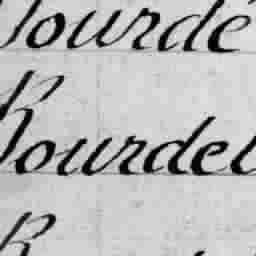 Bourde
Bourdel
B